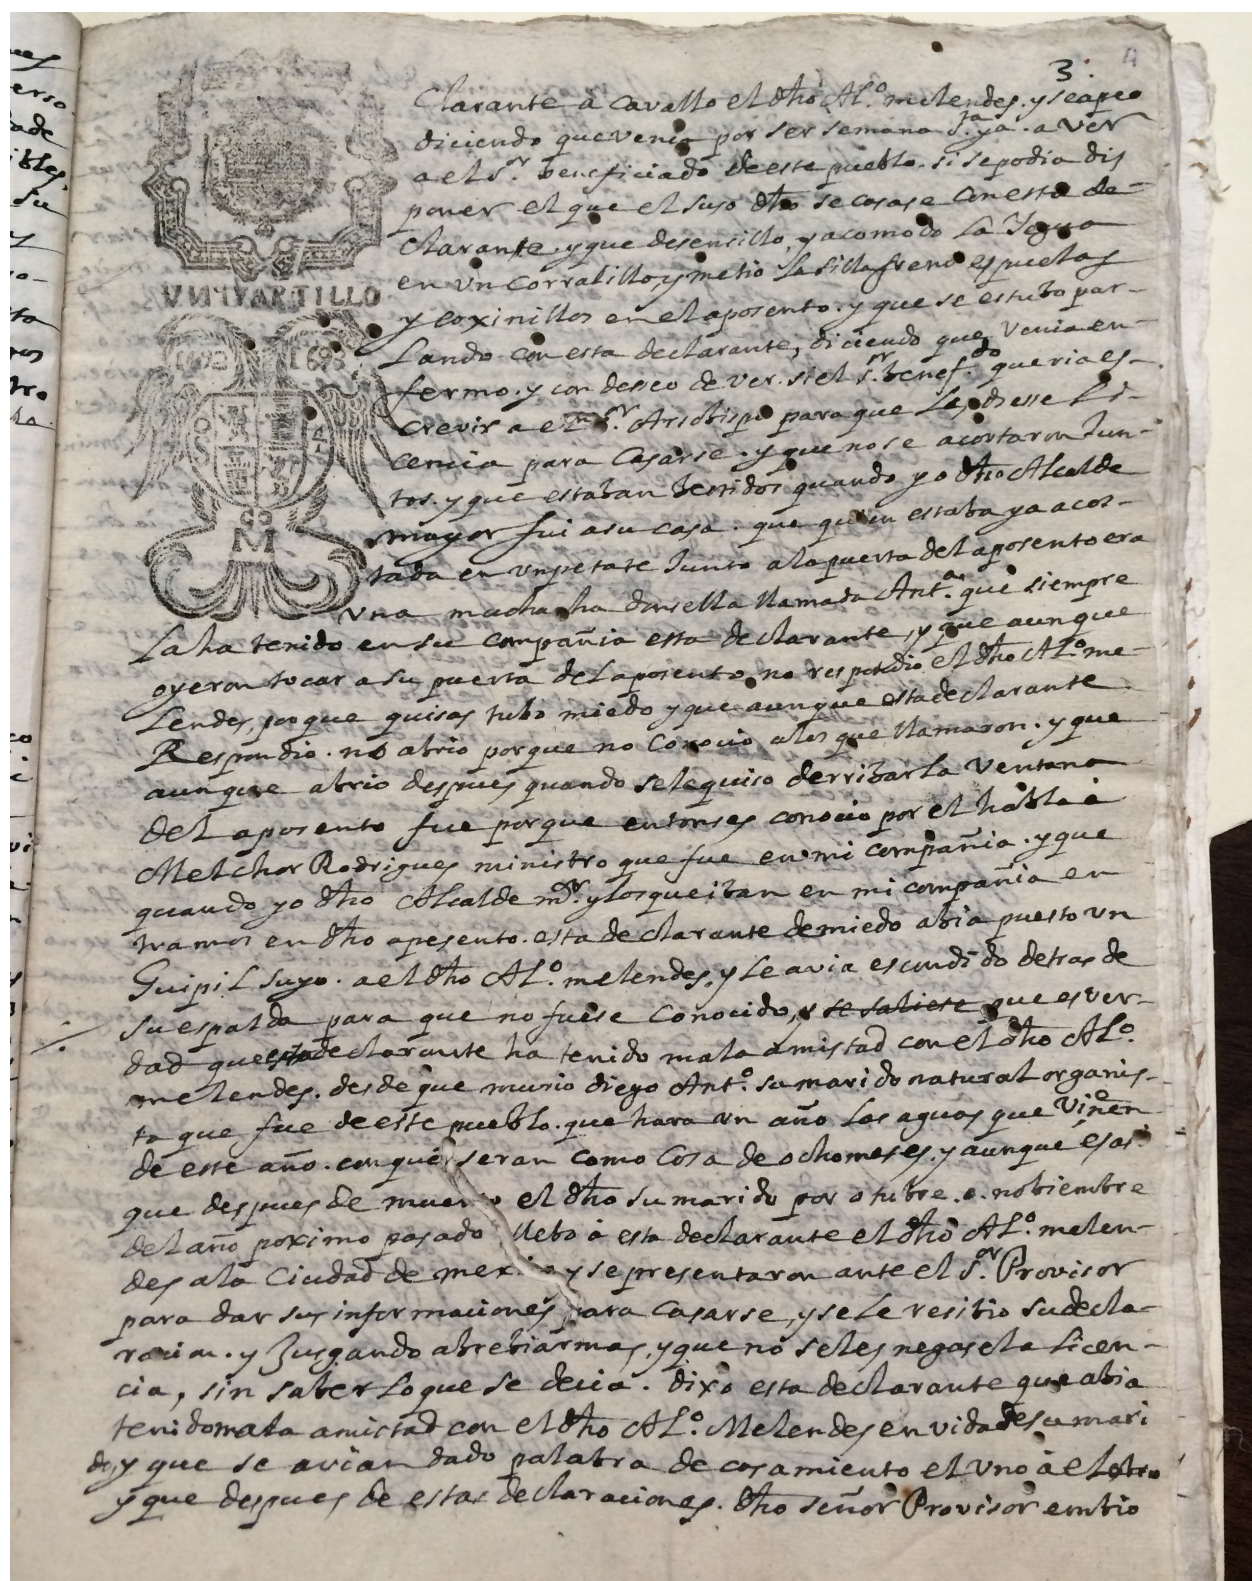 3.
clarante à cavallo el dho Al.º melendes. y se apeo
diciendo que venia por ser semana S.ta ya. a ver
a el s.r beneficiado de este pueblo. si se podia dis
poner el que el suso dho se casase con esta de-
clarante. y que desensillo, y acomodo la Yegua
en un corralillo, y metio la silla freno espuelas
VN QVARTILLO
y coxinillos en el aposento. y que se estubo par-
lando con esta declarante, diciendo que, venia en-
fermo. y con deseo de ver. si el s.r benef.do queria es-
crevir a el s.r Arsobispo para que les diesse li-
cencia para casarse. y que no se acostaron Jun-
tos. y que estaban bestidos quando yo dho Alcalde
mayor fui a su casa. que quien estaba ya acos-
tada en un petate Junto a la puerta del aposento era
una muchacha donsella llamada Ant.a que siempre
la ha tenido en su compañia esta declarante, y que aunque
oyeron tocar a su puerta del aposento, no respondio el dho Al.º me-
lendes, porque quisas tubo miedo y que aunque esta declarante
Respondio. no abrio porque no conocio a los que llamaron. y que
aunque abrio despues quando se le quiso derribar la ventana
del aposento fue porque entonses conocio por el habla à
Melchor Rodrigues ministro que fue en mi compañia. y que
quando yo dho Alcalde m.or y los que iban en mi compañia en
tramos en dho aposento. esta declarante de miedo abia puesto un
Guipil suyo. a el dho Al.º melendes, y le avia escondido detras de
su espalda para que no fuese conocido, y se saliese que es ver-
dad que esta declarante ha tenido mala amistad con el dho Al.º
melendes. desde que murio diego Ant.º su marido natural organis-
ta que fue de este pueblo. que hara un año las aguas que vienen
de este año. con que seran como cosa de ocho meses. y aunque es asi
que despues de muerto el dho su marido por otubre. o. nobiembre
del año poximo pasado llebo à esta declarante el dho Al.º melen-
des a la Ciudad de mexico y se presentaron ante el s.or Provisor
para dar sus informaciones para casarse, y se le resibio su decla-
racion. y Jusgando abrebiar mas, y que no se les negase la licen-
cia, sin saber lo que se decia. dixo esta declarante que abia
tenido mala amistad con el dho Al.º Melendes en vida de su mari
do, y que se avian dado palabra de casamiento el uno à el otro
y que despues de estas declaraciones. dho señor Provisor embio